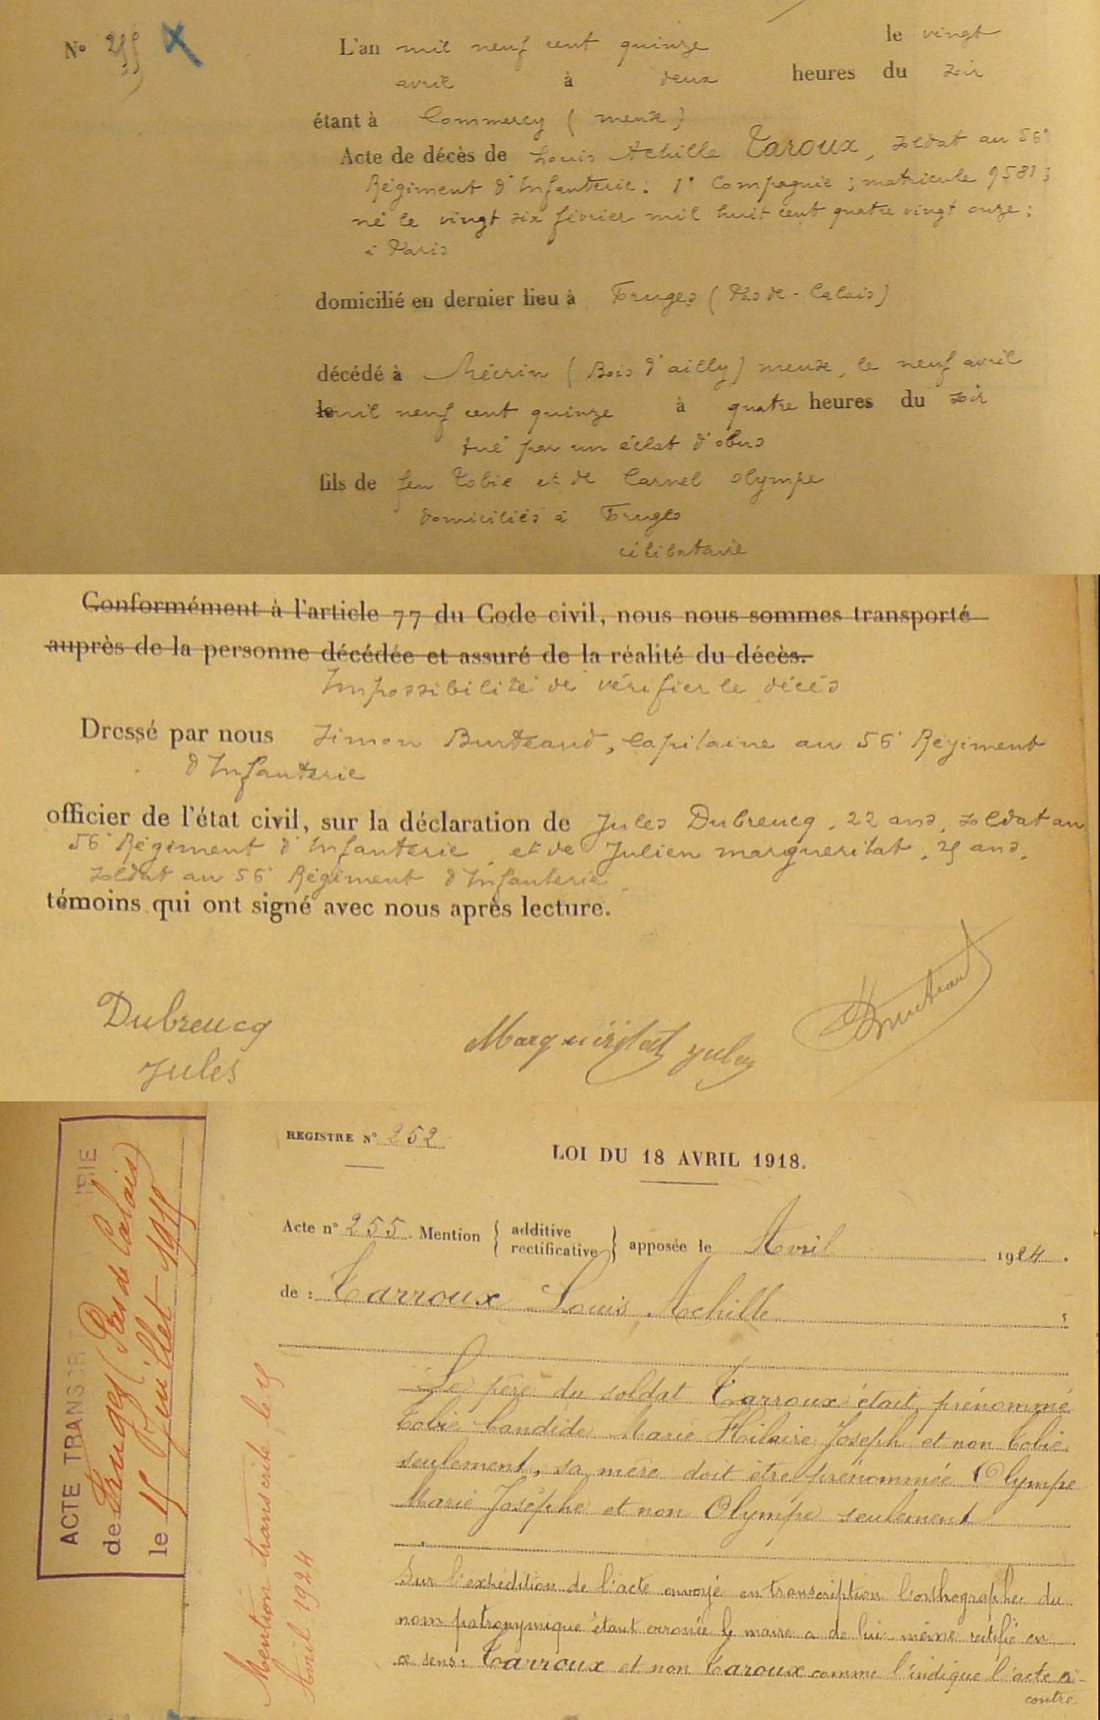 N° 255
L'an mil neuf cent quinze le vingt
avril à deux heures du soir
étant à Commercy ( Meuse )
Acte de décès de Louis Achille Taroux, soldat au 56e
Régiment d'Infanterie : 1e Compagnie ; matricule 9581 ;
né le vingt six février mil huit cent quatre vingt onze :
à Paris
domicilié en dernier lieu à Fruges ( Pas de-Calais )
décédé à Mécrin ( Bois d'ailly ) meuse, le neuf avril
le mil neuf cent quinze à quatre heures du soir
tué par un éclat d'obus
fils de feu Tobie et de Carnel Olympe
domiciliés à Fruges
célibataire
Conformément à l'article 77 du Code civil, nous nous sommes transporté
auprès de la personne décédée et assuré de la réalité du décès.
Impossibilité de vérifier le décès
Dressé par nous Simon Burteaud, Capitaine au 56e Régiment
d'Infanterie
officier de l'état civil, sur la déclaration de Jules Dubreucq, 22 ans, soldat au
56e Régiment d'Infanterie, et de Julien margueritat, 25 ans,
soldat au 56e Régiment d'Infanterie
témoins qui ont signé avec nous après lecture.
Dubreucq
Jules
Margueritat
REGISTRE N° 252
LOI DU 18 AVRIL 1918.
Acte n° 255. Mention { additive
rectificative } apposée le Avril 1924.
de : Tarroux Louis Achille ;
Le père du soldat Tarroux était prénommé
Tobie Candide Marie Hilaire Joseph et non Tobie
seulement, sa mère doit être prénommée Olympe
Marie Josèphe et non Olympe seulement
Sur l'expédition de l'acte envoyé en transcription l'orthographe du
nom patronymique étant erronée le maire a de lui-même rectifié en
ce sens : Tarroux et non Taroux comme l'indique l'acte ci-
contre
ACTE TRANSCR
de Fruges (Pas de Calais)
le 15 Juillet 1915
Mention transcrite le
Avril 1924